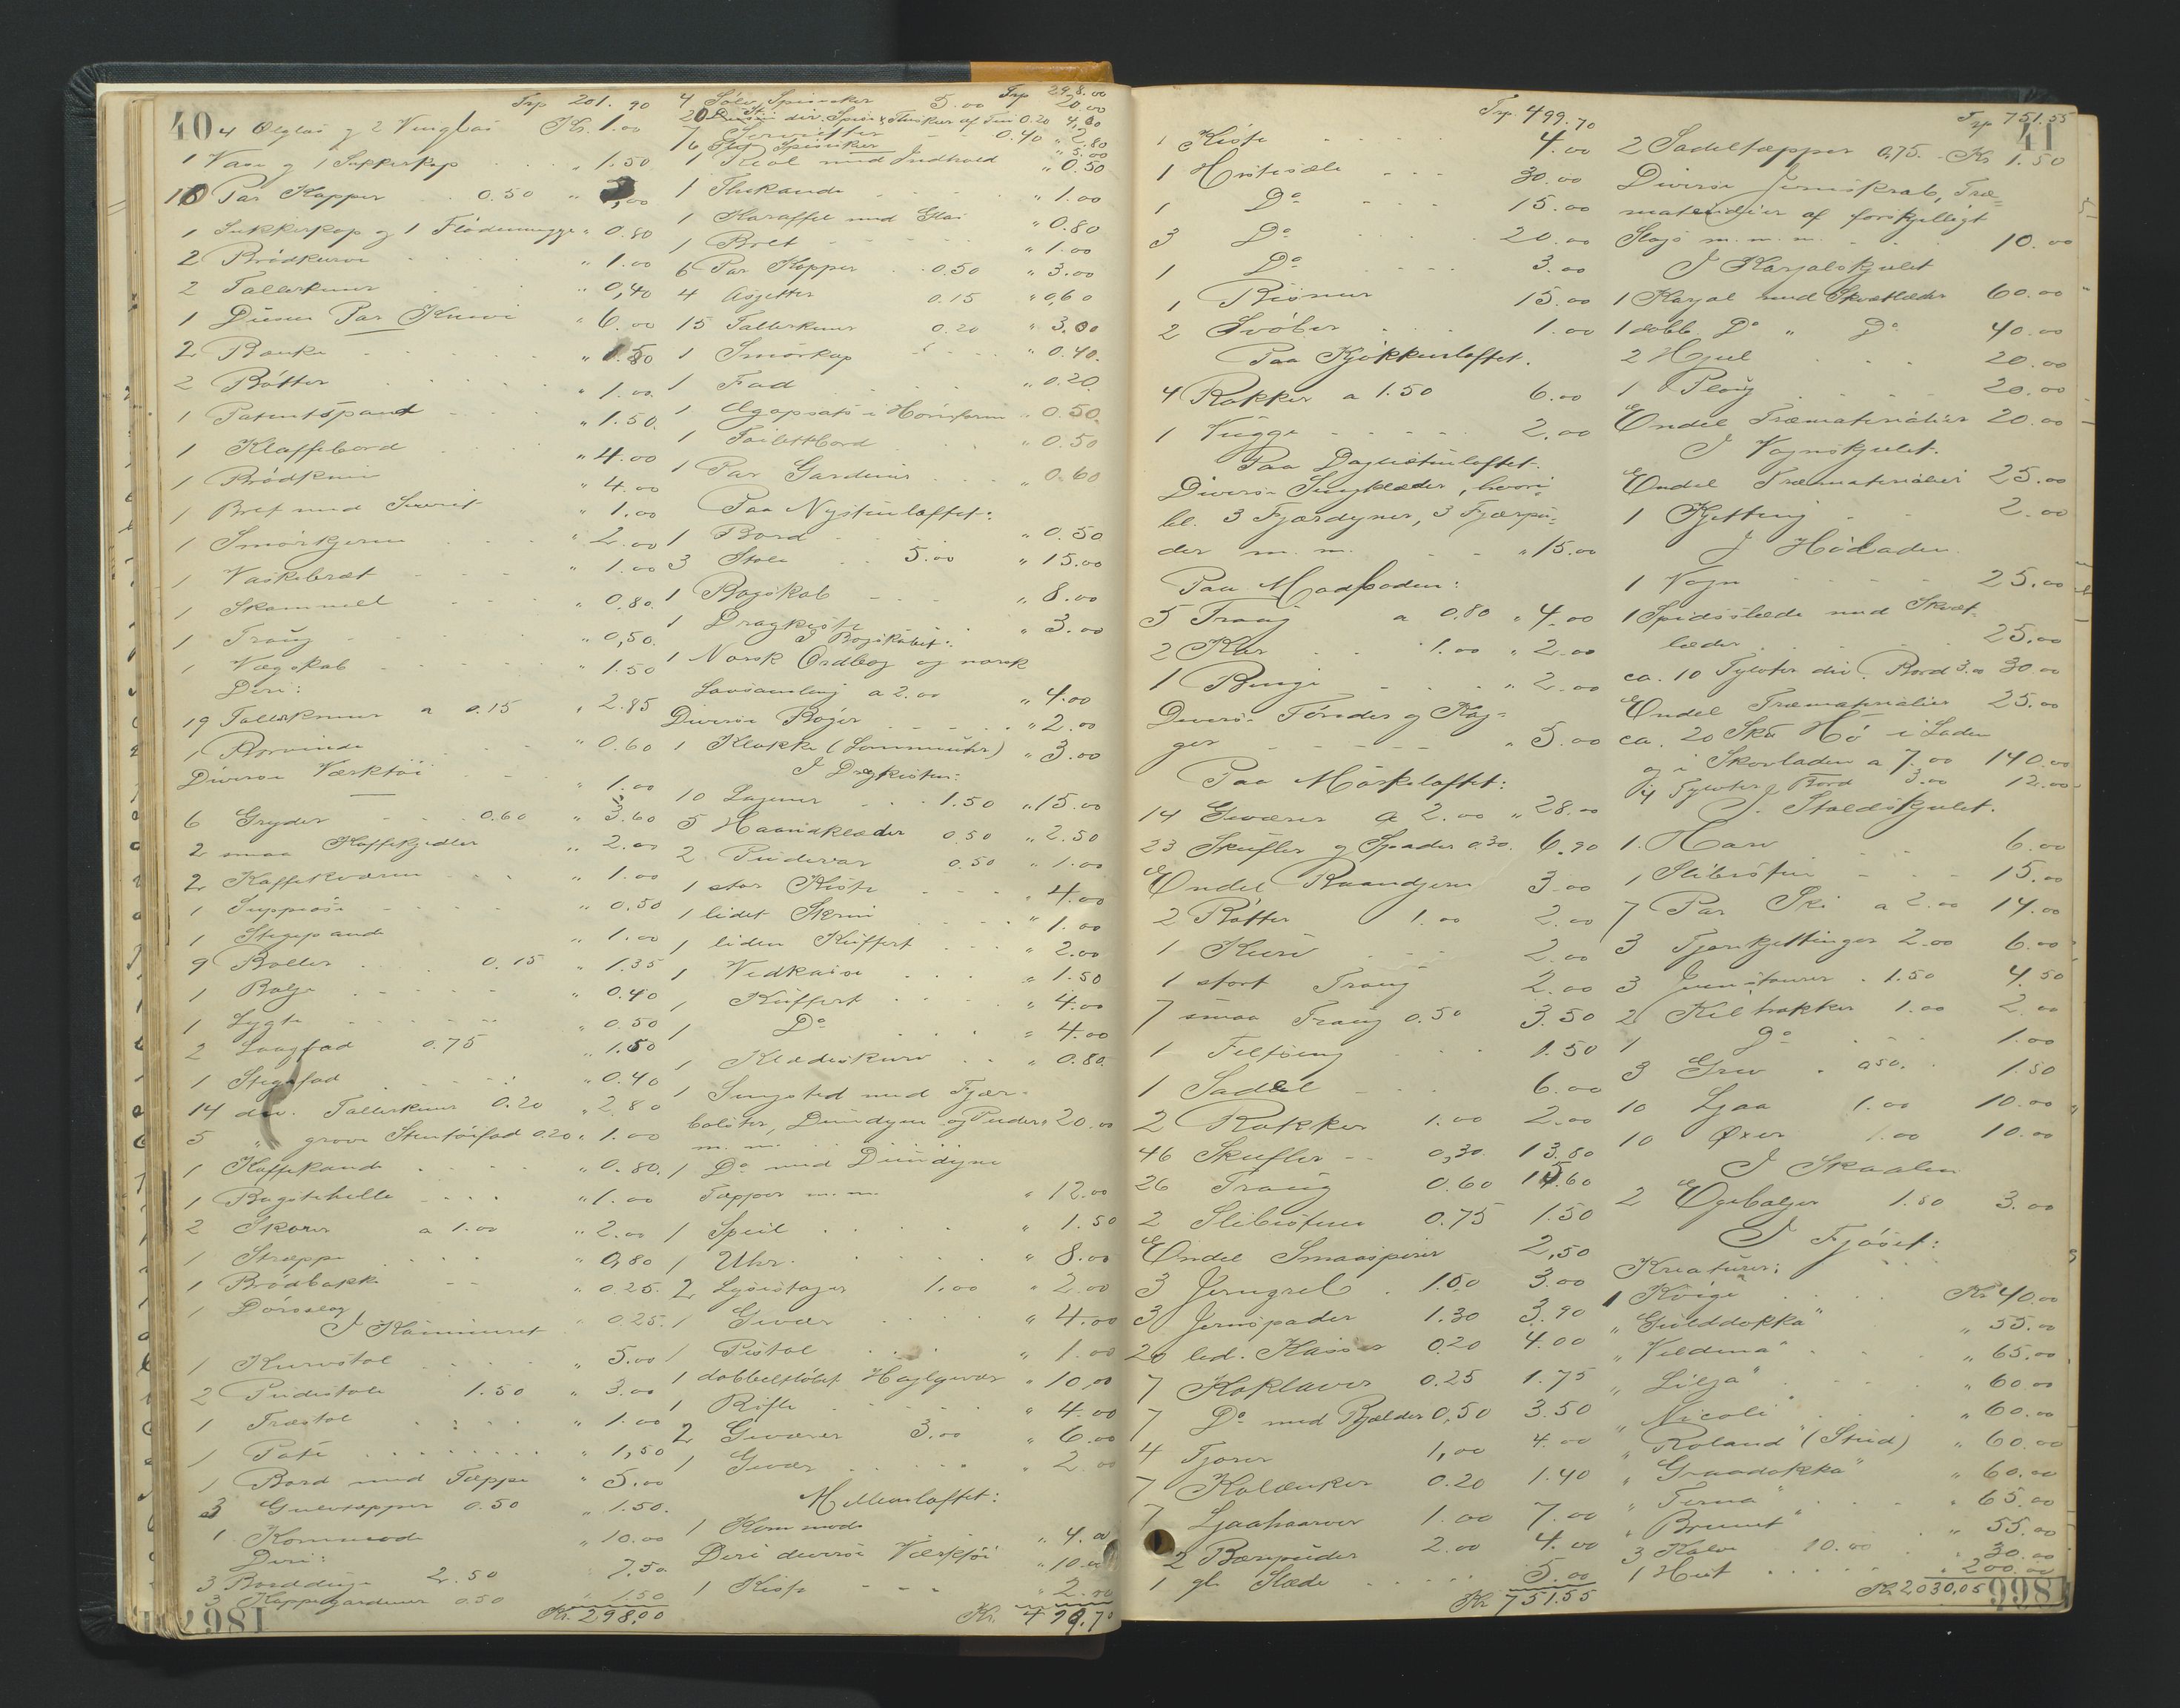 40
Trp 201.90
4 Ølglas og 2 Vinglas Kr. 1.00
1 Vase og 1 Sukkerkop " 1.50
10 Par Kopper 0.50 " 5,00
1 Sukkerkop og 1 Flödemugge " 0.80
2 Brödkurve " 1.00
2 Tallerkener " 0,40
1 Dusin Par Knive " 6.00
2 Bænke
2 Bötter " 1.00
1 Patentspand " 1.50.
1 Klaffebord " 4.00
1 Brödkniv " 4.00
1 Bret med Servit " 1.00
1 Smörkjerne " 2.00
1 Vaskebræt " 1.00
1 Skammel " 0.80.
1 Traug " 0,50.
1 Vægskab " 1.50
Deri:
19 Tallerkener a 0.15 " 2.85
1 " 0.60
Diverse Værktöi " 1.00
6 Gryder 0.60 " 3.60
2 smaa Kaffekjedler " 2.00
2 Kaffekværne " 1.00
1 Suppeöse " 0.50
1 Stegepande " 1.00
9 Boller 0.15 " 1.35
1 Balje " 0.40
1 Lygte " 0.50
2 Laagfad 0.75 " 1.50
1 Stegefad " 0.40
14 div. Tallerkener 0.20 " 2.80
5 " grove Stentöifad 0.20 " 1.00
1 Kaffekande " 0.80.
1 Bagstehelle " 1.00
2 Skorer a 1.00 " 2.00
1 Stræppe " 0,80
1 Brödbakke " 0.25.
1 Dörslag " 0.25.
I Kammeret
1 Kurvstol " 5.00
2 Pindestole 1.50 " 3.00
1 Træstol " 1.00
1 " 1,50
1 Bord med Tæppe " 5.00
3 Gulvtæpper 0.50 " 1.50.
1 Kommode " 10.00
Deri:
3 Bordduge 2.50 7.50
3 Kappegardiner 0.50 1.50
Kr. 298,00
Trp 298.00
4 Sölv Spiseskeer 5.00 20.00
20 St. div. Spise & Theskeer af Tin 0.20 4,00
7 Servietter 0.40 " 2.80
6 Spiseskeer " 5.00
1 Reol med Indhold " 0.50
1 Thekande " 1.00
1 Karaffel med Glas " 0.80
1 Bret " 1.00
6 Par Kopper 0.50 " 3.00
4 Asjetter 0.15 " 0,60
15 Tallerkener 0.20 " 3.00
1 Smörkop " 0.40.
1 Fad " 0.20
1 Ægopsats i Hönsform " 0.50.
1 Toiletbord " 0.50
1 Par Gardiner " 0.60
Paa Nystueloftet:
1 Bord " 0.50
3 Stole 5.00 " 15.00
1 Bogskab " 8.00
1 Dragkiste " 3.00
I Bogskabet:
1 Norsk Ordbog og norsk
Lovsamling a 2.00 " 4.00
Diverse Böger " 2.00
1 Klokke (Lommeuhr) " 3.00
I Dragkisten:
10 Lagener 1.50 " 15.00
5 Haandklæder 0.50 " 2.50
2 Pudevar 0.50 " 1.00
1 stor Kiste " 4.00
1 lidet Skrin " 1.00
1 liden Kuffert " 2.00
1 Vedkasse " 1.50
1 Kuffert " 4.00
1 Do " 4.00
1 Klædeskurv " 0.80.
1 Sengsted med Fjær-
bolster, Dundyne og Puder " 20.00
m. m.
1 Do med Dundyne
Tæpper m. m. " 12.00
1 Speil " 1.50
1 Uhr. " 8.00
2 Lysestager 1,00 " 2.00
1 Gevær " 4.00
1 Pistol " 1.00
1 dobbeltlöbet Haglgevær " 10,00
1 Rifle " 4.00
2 Geværer 3.00 " 6.00
1 Gevær " 2.00
Mellemloftet:
1 Kommode " 4.00
Deri diverse Værktöi " 10.00
1 Kiste " 2.00
Kr. 499.70
Trp. 499.70
1 Kiste 4.00
1 Hestesæle 30.00
1 Do 15.00
3 Do 20.00
1 Do 3.00
1 Bismer 15.00
2 Svöber 1.00
Paa Kjökkenloftet.
4 Rokker a 1.50 6.00
1 Vugge 2.00
Paa Dagligstueloftet.
Diverse Sengklæder, hvori-
bl. 3 Fjærdyner, 3 Fjærpu-
der m. m. " 15.00
Paa Madboden:
5 Traug a 0.80 " 4.00
2 Kar 1.00 " 2.00
1 Binge " 2.00
Diverse Tönder og Kag-
ger " 5.00
Paa Mörkeloftet:
14 Geværer a 2.00 " 28.00
23 Skufler og Spader 0.30. 6.90
Endel Baandjern 3.00
2 Bötter 1.00 2.00
1 Kurv 2.00
1 stort Traug 2.00
7 smaa Traug 0.50 3.50
1 Feltseng 1.50
1 Sadel 6.00
2 Rokker 1.00 2.00
46 Skufler 0,30. 13.80
26 Traug 0.60 15.60
2 Slibestene 0.75 1.50
Endel Smaaspiger 2,50
3 Jerngreb 1.00 3.00
3 Jernspader 1.30 3.90
20 led. Kasser 0.20 4.00
7 Koklaver 0.25 1.75
7 Do med Bjælder 0,50 3.50
4 Tjorer 1,00 4.00
7 Kolænker 0.20 1.40
7 Ljaahaarver 1.00 7.00
2 Bærepuder 2.00 4.00
1 gl. Slæde 5.00
Kr 751.55
41
Trp 751.55
2 Sadeltæpper 0,75. Kr 1.50
Diverse Jernskrab, Træ-
materialier af forskjelligt
Slags m. m. m. 10.00
I Karjolskjulet
1 Karjol med Skvætlæder 60.00
1 dobb. Do " Do 40.00
2 Hjul 20.00
1 Ploug 20.00
Endel Træmaterialier 20.00
I Vognskjulet.
Endel Træmaterialier 25.00
1 Kjetting 2.00
I Höladen
1 Vogn 25.00
1 Spidsslæde med Skvæt-
læder 25.00
ca. 10 Tylvter div. Bord 3.00 30.00
Endel Træmaterialier 25.00
ca. 20 Sk℔ Hö i Laden
og i Skovladen a 7.00 140.00
4 Tylvter Bord 3.00 12.00
I Staldskjulet.
1 Harv 6.00
1 Slibesten 15.00
7 Par Ski a 2.00 14.00
3 Tjorkjettinger 2.00 6.00
3 Jernstaurer 1.50 4.50
2 Kilhakker 1.00 2.00
1 Do 1.00
3 Grev 0.50. 1.50
10 Ljaa 1.00 10.00
10 Øxer 1.00 10.00
I Skaalen
2 Egebaljer 1.50 3.00
I Fjöset:
Kreaturer:
1 Kvige Kr 40.00
"Gulddokka" " 55.00
"Veldena" " 65.00
"Lilja" " 60.00
"Nicoli" " 60.00
"Roland" (Stud) " 60.00
"Graadokka" " 60.00
"Terna" " 65.00
"Brunet" " 55.00
3 Kalve 10.00 30.00
1 Hest 200.00
Kr 2030,05